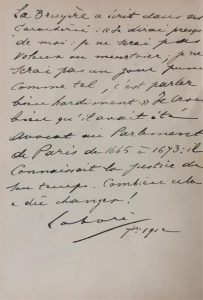 La Bruyère a écrit dans ses
Caractères : « Je dirai presque
de moi : je ne serai pas
voleur ou meurtrier, je ne
serai pas un jour puni
comme tel, c'est parler
bien hardiment » Je crois
bien qu'il avait été
avocat au Parlement
de Paris de 1665 à 1673 ; il
connaissait la justice de
son temps. Combien cela
a dû changer !
Labori
1912